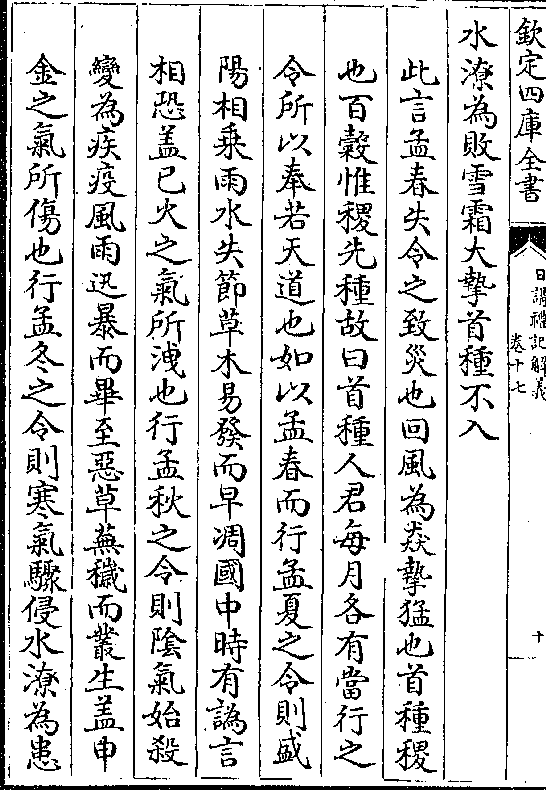 欽定四庫全書
日講禮記解義
卷十七
十
水潦為敗雪霜大摯首種不入
此言孟春失令之致災也回風為猋摯猛也首種稷
也百穀惟稷先種故曰首種人君每月各有當行之
令所以奉若天道也如以孟春而行孟夏之令則盛
陽相乘雨水失節草木易發而早凋國中時有譌言
相恐蓋巳火之氣所洩也行孟秋之令則陰氣始殺
變為疾疫風雨迅暴而畢至惡草蕪穢而叢生蓋申
金之氣所傷也行孟冬之令則寒氣驟侵水潦為患